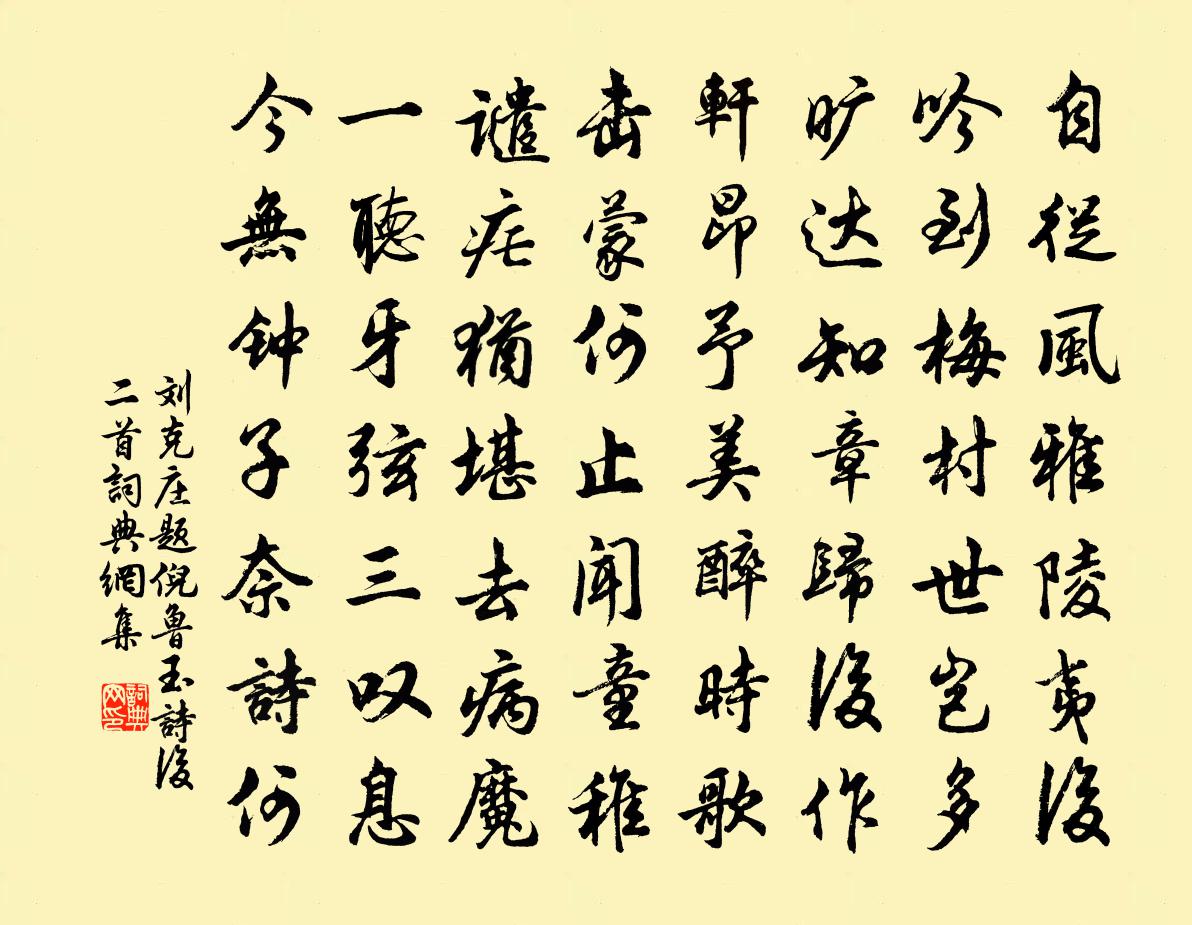 自從風雅陵夷後
吟到梅村世岂多
旷达知章歸後作
軒昂予美醉時歌
击蒙何止闻童稚
譴疟猶堪去病魔
一聽牙弦三叹息
今無钟子奈詩何
刘克庄题倪魯玉詩後
二首詞典網集
詞典网印